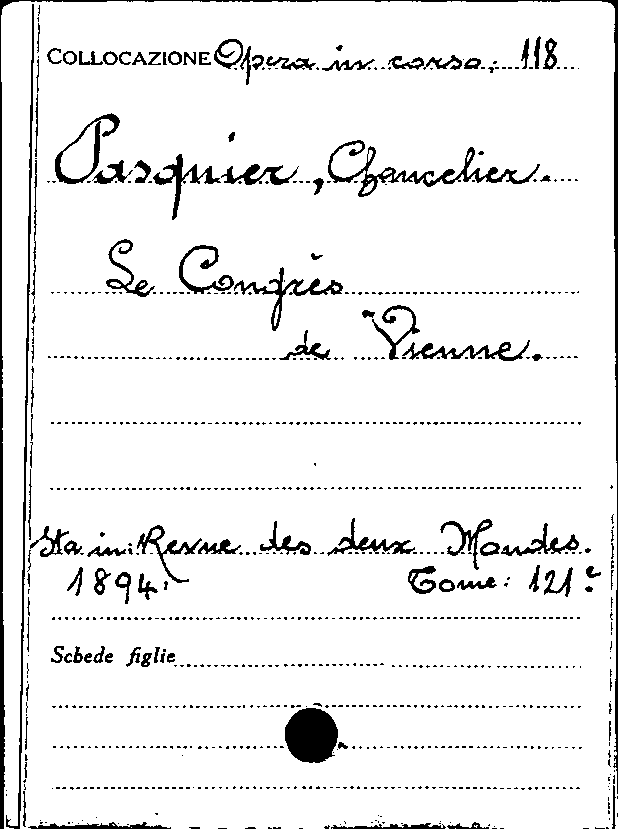 COLLOCAZIONE Opera in corso, 118
Pasquier, Chancelier.
Le Congrès
de Vienne.
Sta in: Revue des deux Mondes.
1894. Tome: 121e
Schede figlie